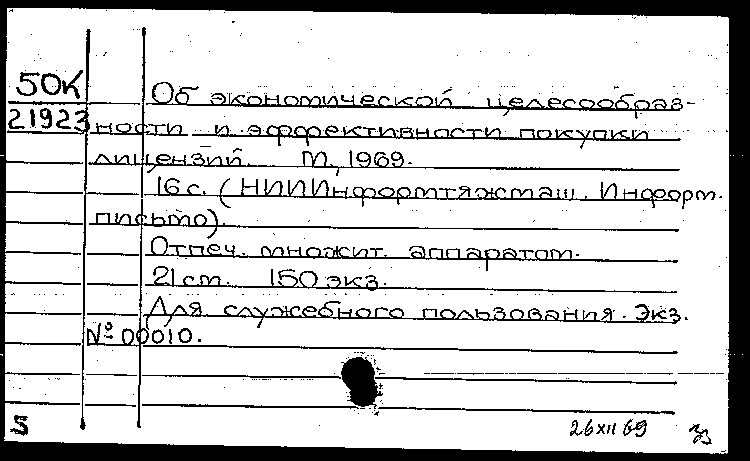 50К
21923
Об экономической целесообраз-
ности и эффективности покупки
лицензий. М., 1969.
16 с. (НИИИнформтяжмаш. Информ.
письмо).
Отпеч. множит. аппаратом.
21 см. 150 экз.
Для служебного пользования. Экз.
№ 00010.
26 XII 69